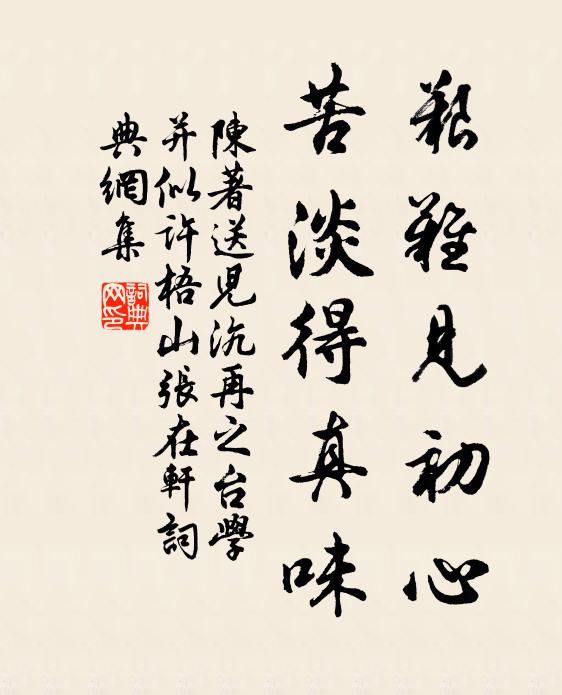 艱難見初心
苦淡得真味
陳著送児沆再之台學
并似許梧山張在軒詞
典網集
詞典网印